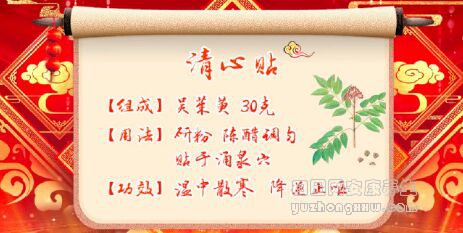 清心贴
【组成】吴茱萸 30克
【用法】研粉 陈醋调匀
贴于涌泉穴
【功效】温中散寒 降逆止呕
yuzhongxuw.com